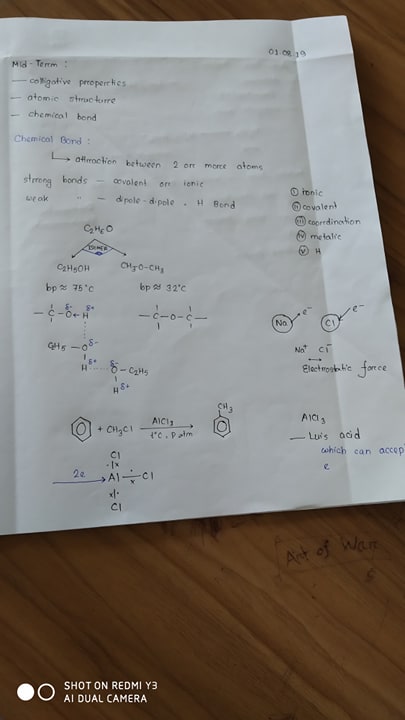 01.08.19
Mid-Term :
— colligative properties
— atomic structure
— chemical bond
Chemical Bond :
↳ attraction between 2 or more atoms
strong bonds — covalent or ionic
weak " — dipole-dipole, H Bond
(i) ionic
(ii) covalent
(iii) coordination
(iv) metalic
(v) H
C2H6O
ISOMER
C2H5OH CH3O-CH3
bp ≈ 75°C bp ≈ 32°C
— C — O ← H
δ- δ+
— C — O — C —
C2H5 — O δ-
H δ+
δ- O — C2H5
H δ+
Na e- Cl e-
Na+ Cl-
Electrostatic force
+ CH3Cl AlCl3 t°C, P atm CH3
AlCl3
— Luis acid
which can accep
e
2e
Cl
Al — Cl
Cl
Art of War
SHOT ON REDMI Y3
AI DUAL CAMERA